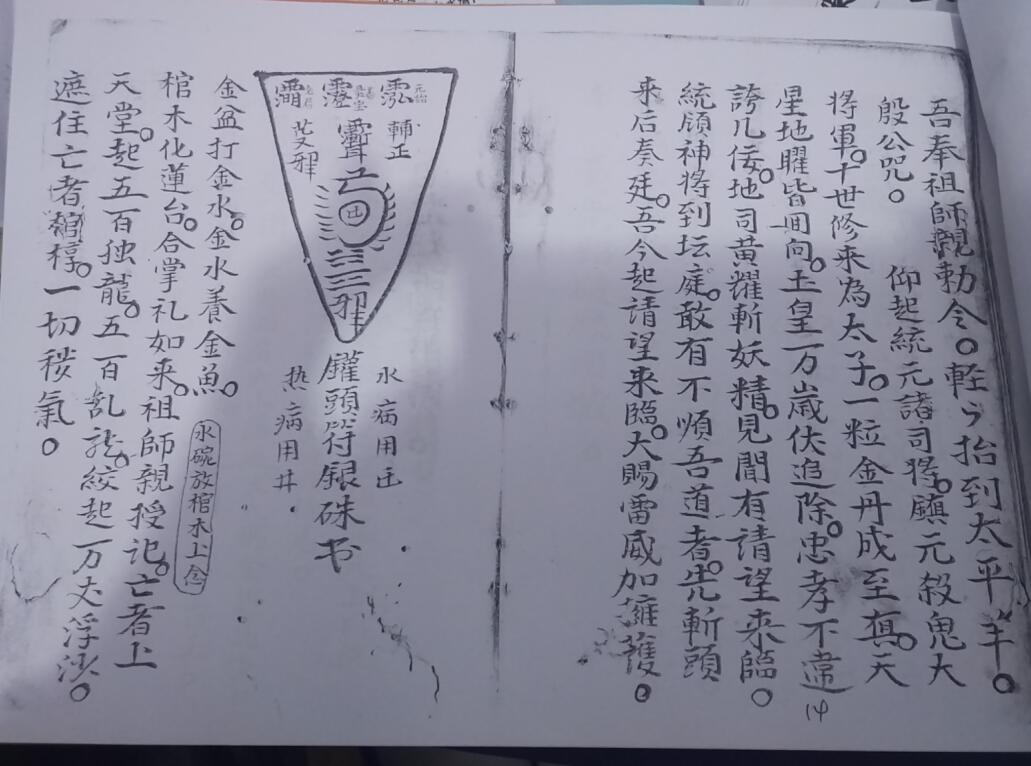 吾奉祖師親勅令。軽々抬到太平羊。
殷公咒。 仰起統元諸司將。鎮元殺鬼大
將軍。十世修来為太子。一粒金丹成至真。天
星地曜皆回向。玉皇万歲伏追除。忠孝不違
誇凡佞。地司黄耀斬妖精。見聞有請望来臨。
14
統領神將到坛庭。敢有不順吾道者。先斬頭
来后奏廷。吾今起請望来臨。大賜雷威加擁護。
輔正
三
水病用
頭符銀硃书
热病用井
金盆打金水。金水養金魚。
水碗放棺木上念
棺木化蓮台。合掌礼如来。祖師親授记。亡者上
天堂。起五百独龍。五百乱龙。絞起一万丈浮沙。
遮住亡者棺椁。一切秽氣。